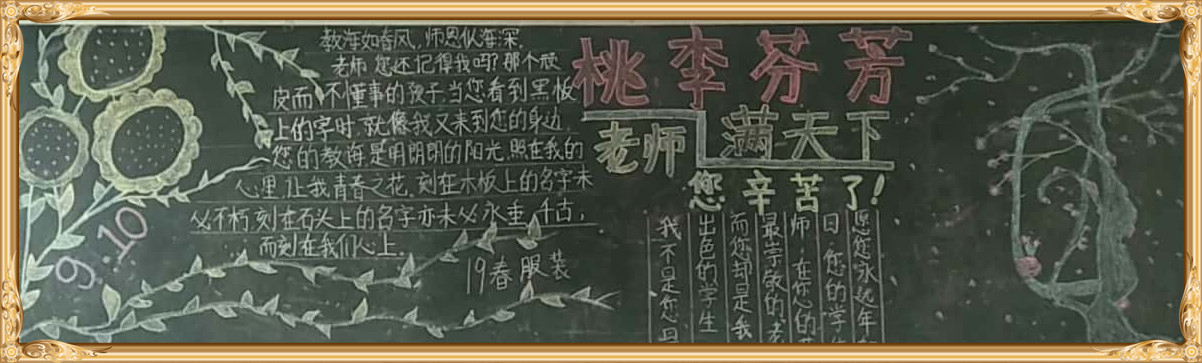 教海如春风,师恩似海深.
老师 您还记得我吗?那个顽
皮而不懂事的孩子当您看到黑板
上的字时.就像我又来到您的身边
您的教海是明朗朗的阳光.照在我的
心里.让我青春之花.刻在木板上的名字未
必不朽刻在石头上的名字亦未必永垂千古,
而刻在我们心上.
19春服装
9.10
桃李芬芳
满天下
老师
您辛苦了!
愿您永远年
日.您的学
师.在您的
最崇敬的老
而您却是我
出色的学生
我不是您